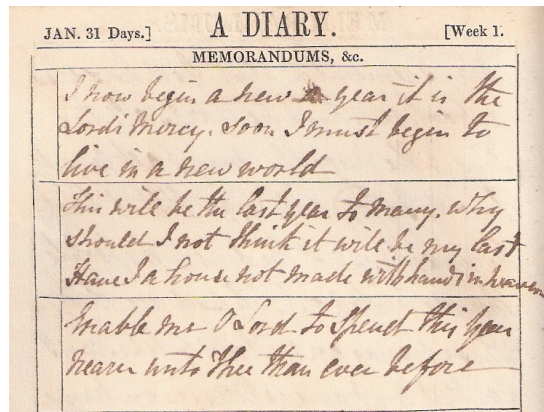 JAN. 31 Days.] A DIARY. [Week 1.
MEMORANDUMS, &c.
I now begin a new year it is the
Lord's Mercy. Soon I must begin to
live in a new world
This will be the last year to many. Why
should I not think it will be my last
Have I a house not made with hands in heaven
Enable me O Lord to spend this year
nearer unto Thee than ever before